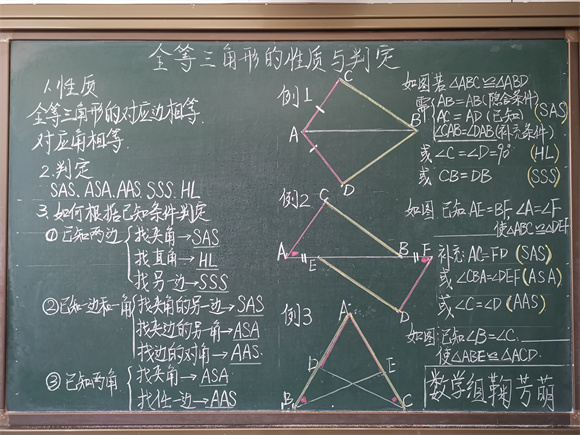 全等三角形的性质与判定
1.性质
全等三角形的对应边相等.
对应角相等.
2.判定
SAS.ASA.AAS.SSS.HL
3.如何根据已知条件判定
①已知两边
找夹角→SAS
找直角→HL
找另一边→SSS
②已知一边和一角
找夹角的另一边→SAS
找夹边的另一角→ASA
找边的对角→AAS
③已知两角
找夹角→ASA
找任一边→AAS
例1
C
A
B
D
例2
C
A
E
B
F
D
例3
A
D
E
B
C
如图若△ABC≌△ABD
需
AB=AB(隐含条件)
AC=AD(已知)
∠CAB=∠DAB(补充条件)
(SAS)
或∠C=∠D=90° (HL)
或 CB=DB (SSS)
如图.已知AE=BF,∠A=∠F
使△ABC≌△DEF
补充:AC=FD (SAS)
或∠CBA=∠DEF(ASA)
或∠C=∠D(AAS)
如图:已知∠B=∠C.
使△ABE≌△ACD.
数学组鞠芳萌